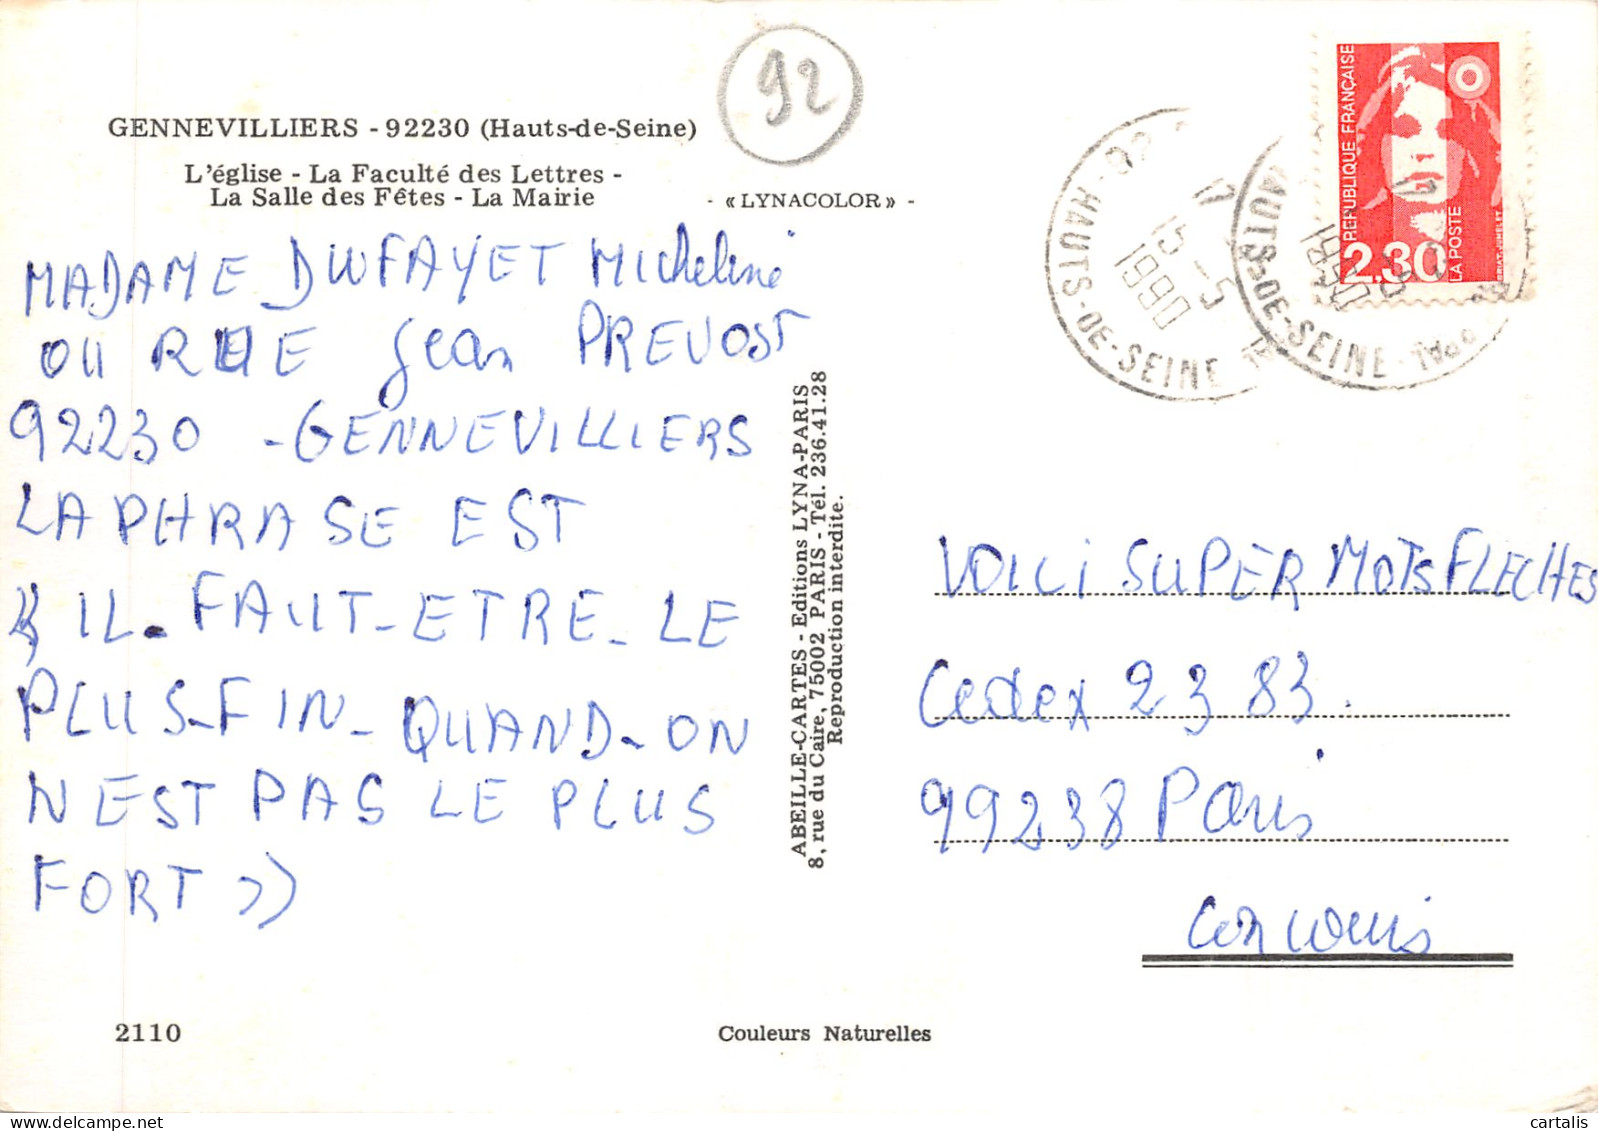 92
GENNEVILLIERS - 92230 (Hauts-de-Seine)
L'église - La Faculté des Lettres -
La Salle des Fêtes - La Mairie
- « LYNACOLOR » -
MADAME DUFAYET Micheline
011 RUE Jean PREVOST
92230 - GENNEVILLIERS
LA PHRASE EST
« IL - FAUT - ETRE - LE
PLUS - FIN - QUAND - ON
N EST PAS LE PLUS
FORT »
ABEILLE-CARTES - Editions LYNA-PARIS
8, rue du Caire, 75002 PARIS - Tél. 236.41.28
Reproduction interdite.
HAUTS-DE-SEINE
17
15 -5
1990
HAUTS-DE-SEINE
17
1990
RÉPUBLIQUE FRANÇAISE
2,30
LA POSTE
VOICI SUPER MOTS FLECHES
Cedex 2383.
99238 Paris
Concours
2110
Couleurs Naturelles
cartalis